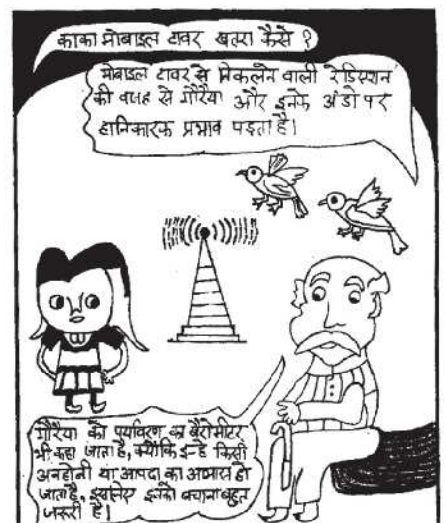 काका मोबाइल टावर खतरा कैसे ?
मोबाइल टावर से निकलने वाली रेडिएशन
की वजह से गौरैया और इनके अंडो पर
हानिकारक प्रभाव पड़ता है।
गौरैया को पर्यावरण का बैरोमीटर
भी कहा जाता है, क्योंकि इन्हे किसी
अनहोनी या आपदा का आभास हो
जाता है, इसलिए इनको बचाना बहुत
जरूरी है।